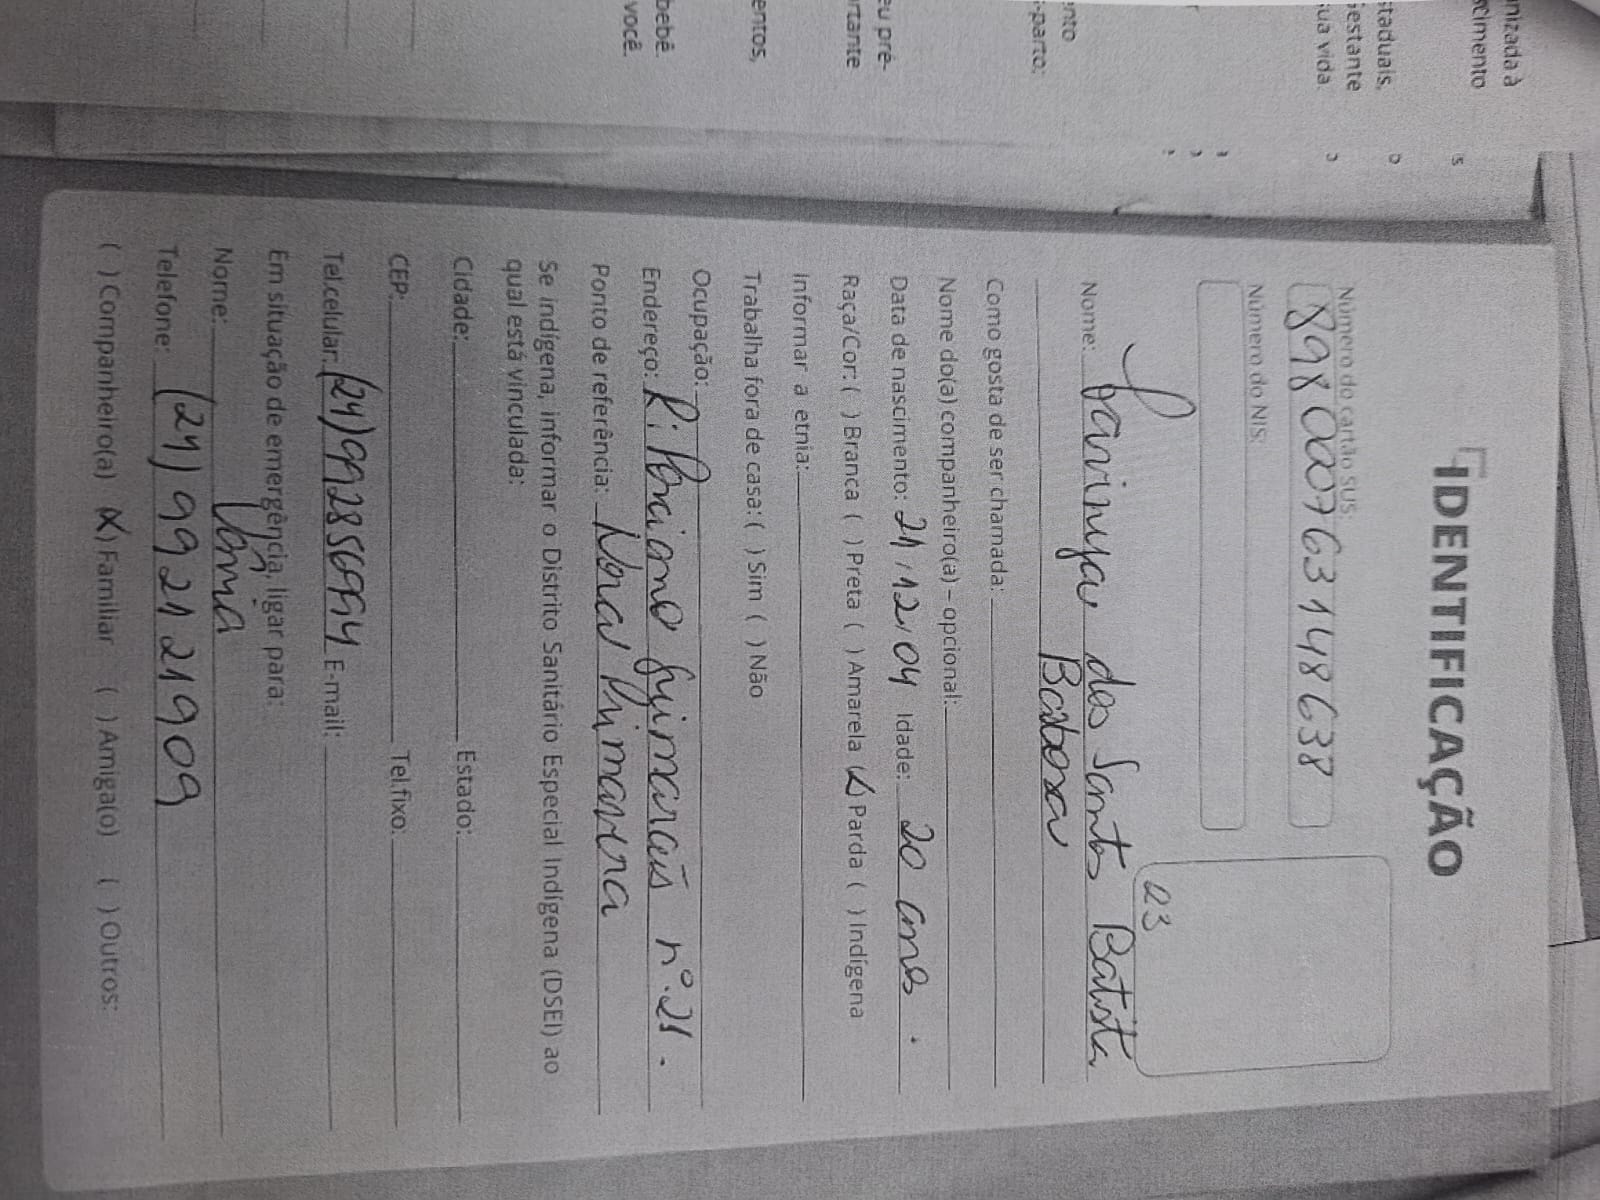 IDENTIFICAÇÃO
Número do cartão SUS:
898 0009763148638
Número do NIS:
03
Nome: dos Santos Batista
Barbosa
Como gosta de ser chamada:
Nome do(a) companheiro(a) – opcional:
Data de nascimento: 21/12/04 Idade: 20 anos.
Raça/Cor: ( ) Branca ( ) Preta ( ) Amarela (X) Parda ( ) Indígena
Informar a etnia:
Trabalha fora de casa: ( ) Sim ( ) Não
Ocupação:
Endereço: R: nº. 21.
Ponto de referência: Nova Primavera
Se indígena, informar o Distrito Sanitário Especial Indígena (DSEI) ao
qual está vinculada:
Cidade: Estado:
CEP: Tel.fixo:
Tel.celular: E-mail:
Em situação de emergência, ligar para:
Nome: Vânia
Telefone: (21) 99 21 21909
( ) Companheiro(a) (X) Familiar ( ) Amiga(o) ( ) Outros:
nizada à
scimento
staduais,
Gestante
sua vida.
nto
-parto:
eu pré-
rtante
entos,
bebê.
você.